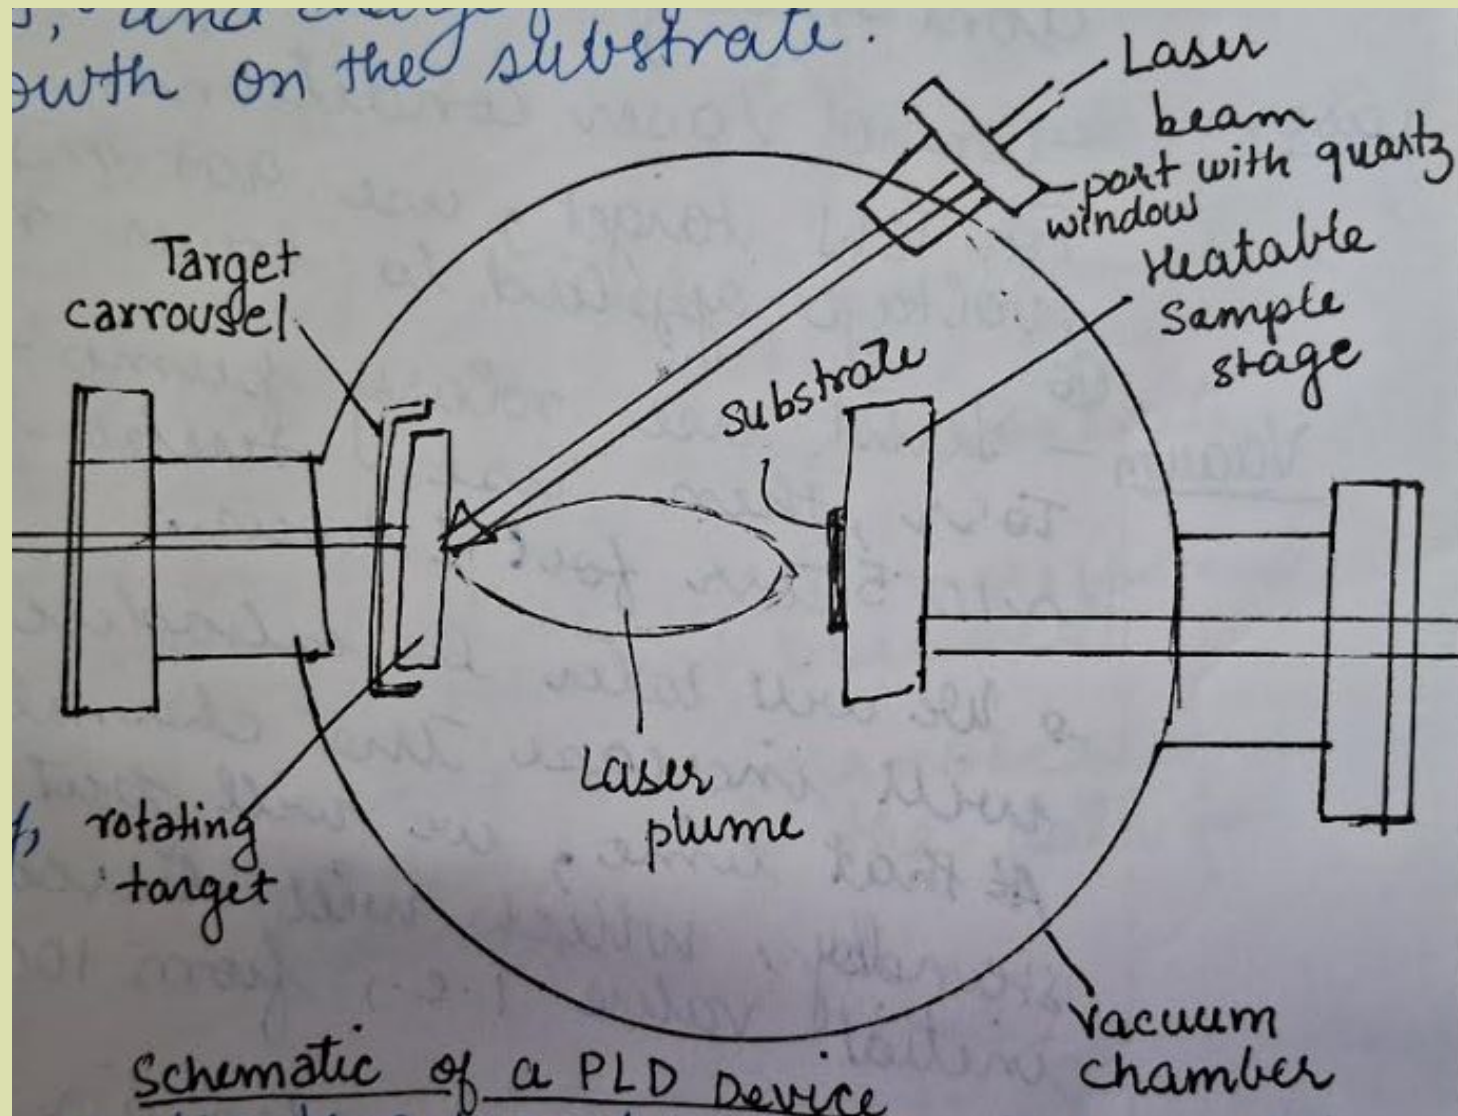 and charge
owth on the substrate.
Laser
beam
port with quartz
window
Heatable
Sample
stage
Target
carrousel
substrate
Laser
plume
rotating
target
vacuum
chamber
Schematic of a PLD Device